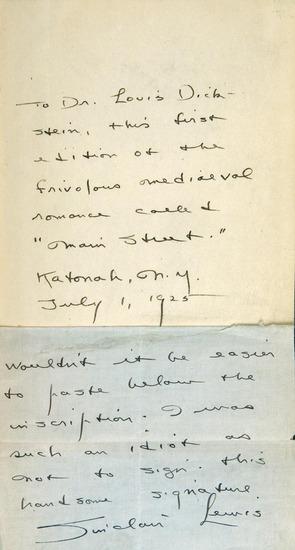 To Dr. Louis Dick-
stein, this first
edition of the
frivolous mediaeval
romance called
"Main Street."
Katonah, N.Y.
July 1, 1925
Wouldn't it be easier
to paste below the
inscription. I was
such an idiot as
not to sign. this
handsome signature.
Sinclair Lewis